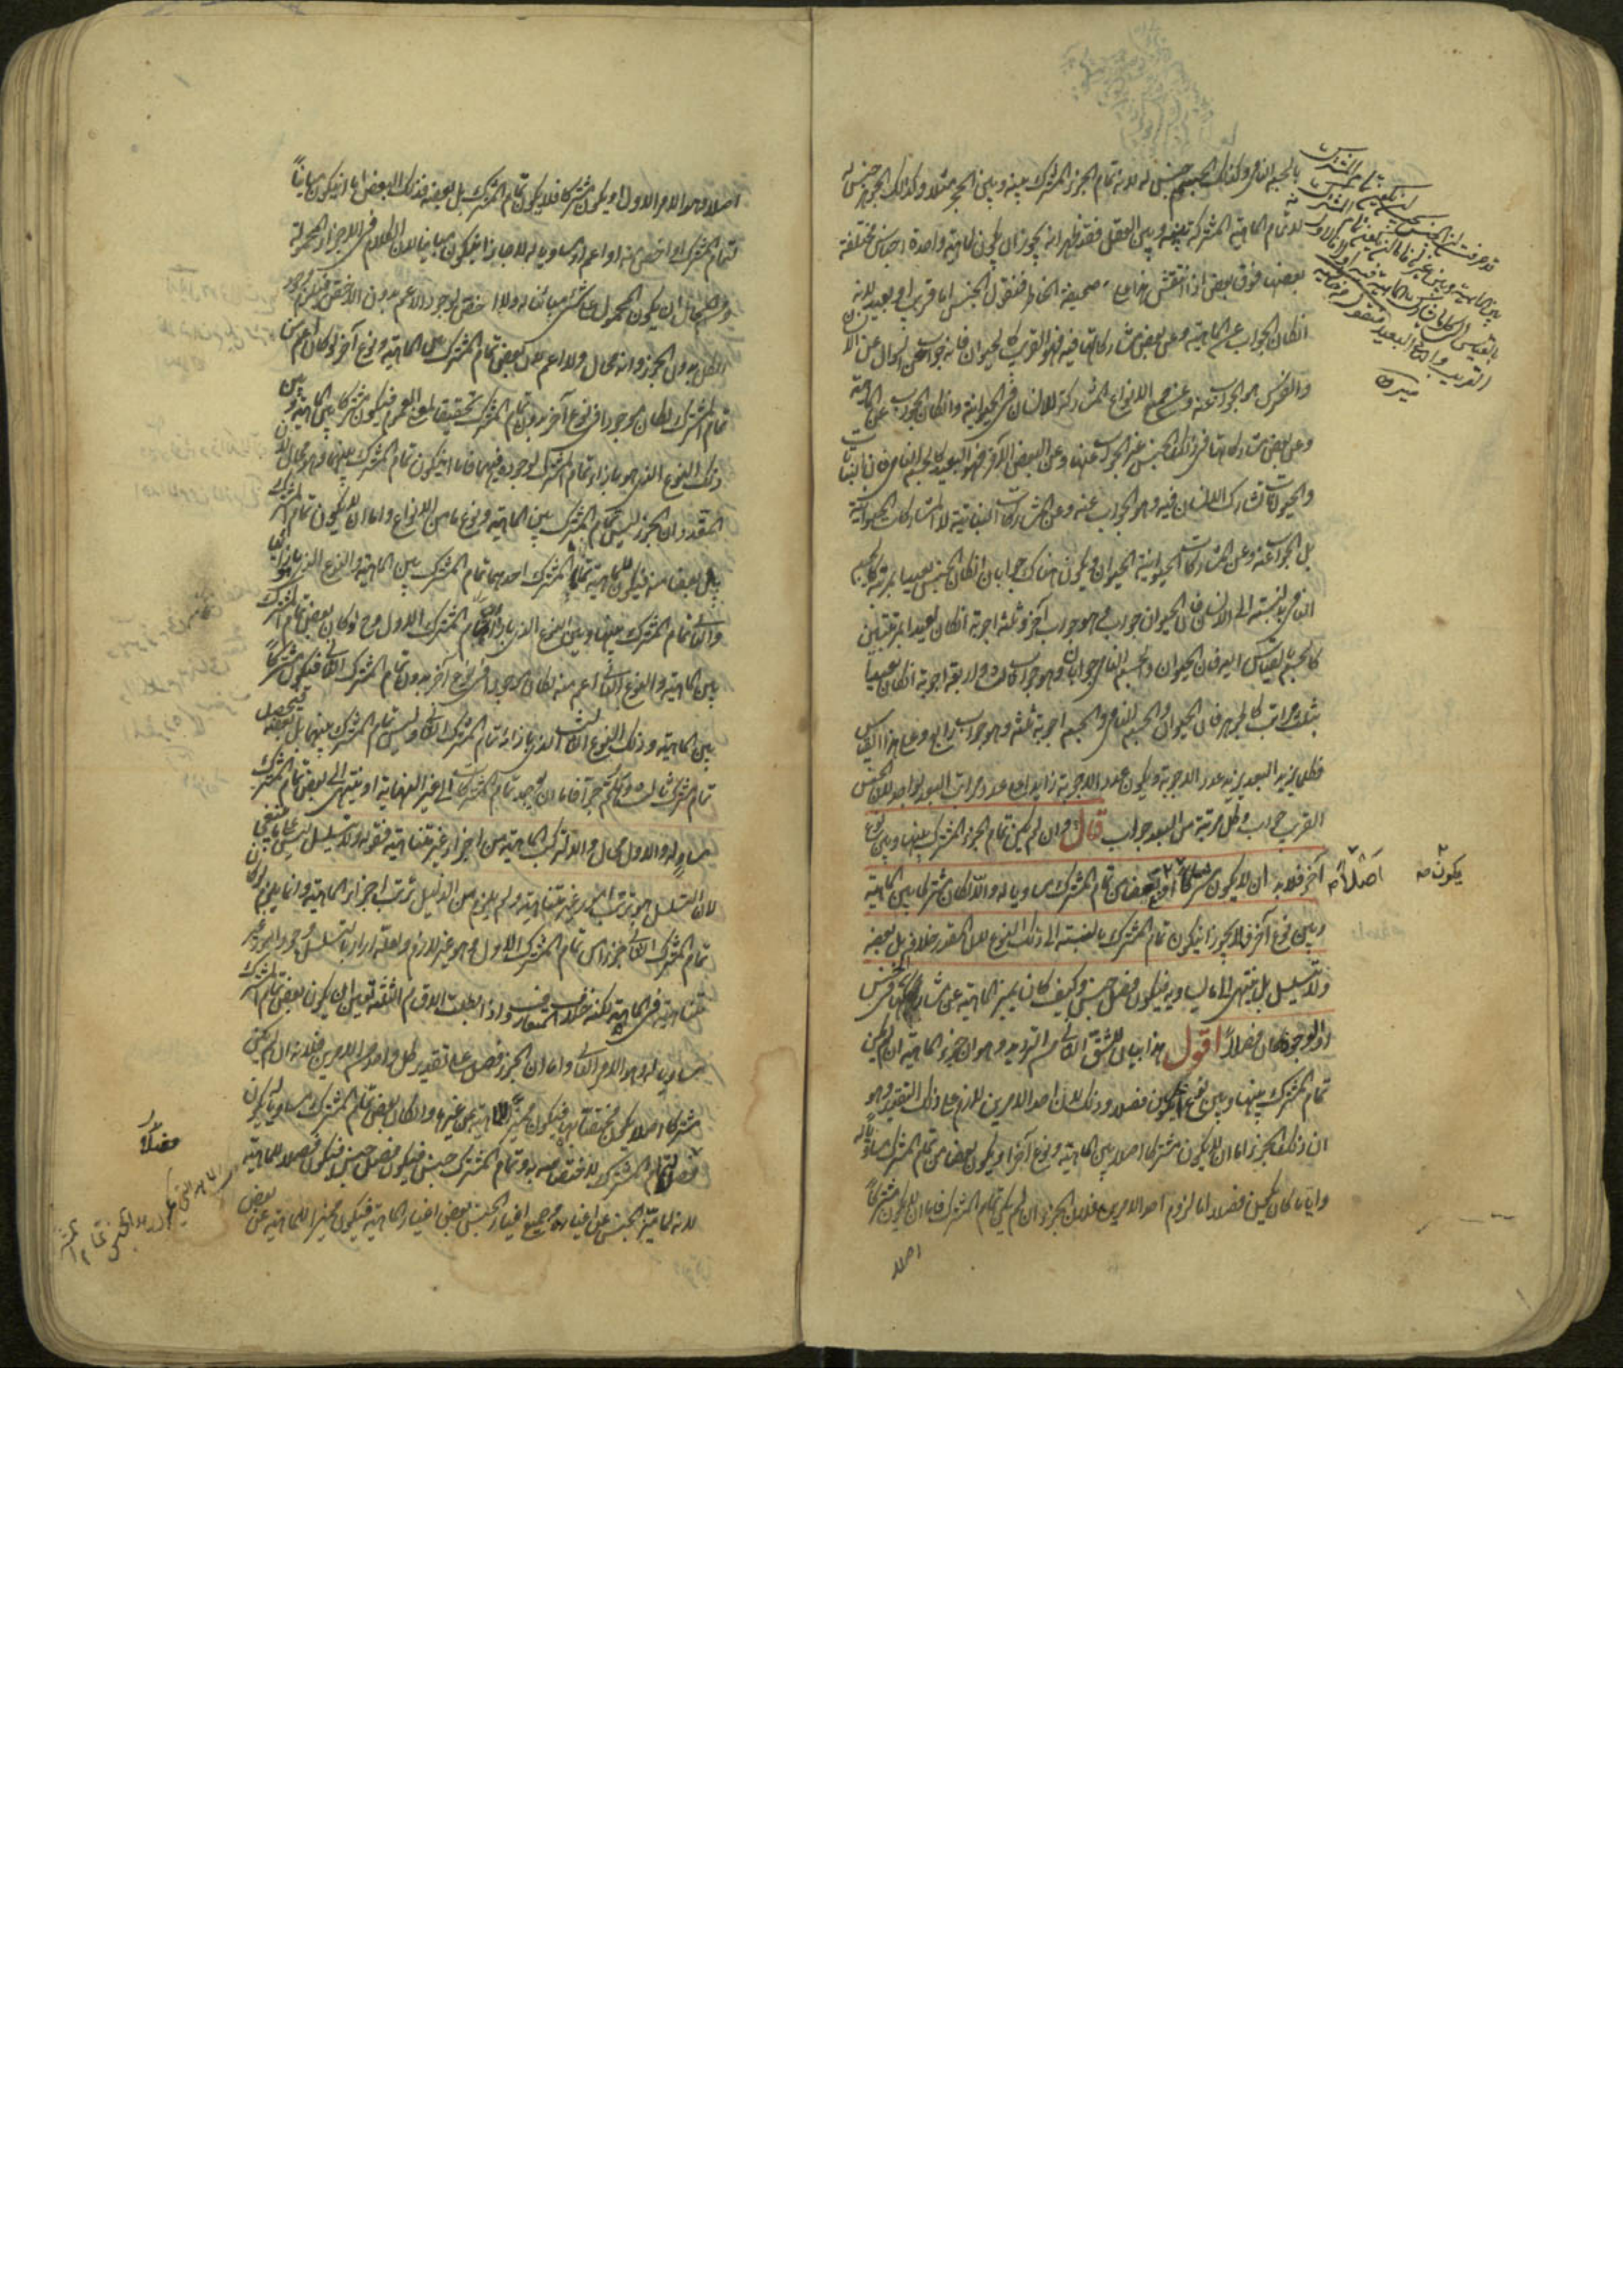 بالجسم النامي وكذلك الجسم جنس له لانه تمام الجزء المشترك بينه وبين الحجر مثلا وكذلك الجوهر جنس له
لانه تمام الماهية المشتركة بينه وبين العقل فقد ظهر انه يجوز ان يكون لماهية واحدة اجناس مختلفة
بعضها فوق بعض اذا انتقش هذا على صحيفة الخاطر فنقول الجنس اما قريب او بعيد لانه
انكان الجواب عن الماهية وعن بعض مشاركاتها فيه فهو القريب كالحيوان فانه جواب عن السؤال عن الانسان
والفرس وهو الجواب عنه وعن جميع الانواع المشاركة للانسان في الحيوانية وانكان الجواب عن الماهية
وعن بعض مشاركاتها في ذلك الجنس غير الجواب عنها وعن البعض الآخر فهو البعيد كالجسم النامي فان النباتات
والحيوانات تشارك الانسان فيه وهو الجواب عنه وعن المشاركات النباتية لا المشاركات الحيوانية
بل الجواب عنه وعن المشاركات الحيوانية الحيوان ويكون هناك جوابان انكان الجنس بعيدا بمرتبة كالجسم
النامي بالنسبة الى الانسان فان الحيوان جواب وهو جواب آخر وثلثة اجوبة انكان بعيدا بمرتبتين
كالجسم بالقياس اليه فان الحيوان والجسم النامي جوابان وهو جواب ثالث واربعة اجوبة انكان بعيدا
بثلث مراتب كالجوهر فان الحيوان والجسم النامي والجسم اجوبة ثلثة وهو جواب رابع وعلى هذا القياس
فكلما يزيد البعد يزيد عدد الاجوبة ويكون عدد الاجوبة زايدا على عدد مراتب البعد بواحد لان الجنس
القريب جواب وكل مرتبة من البعد جواب قال وان لم يكن تمام الجزء المشترك بينها وبين نوع
آخر فلابد ان لا يكون مشتركا او بعضا من تمام المشترك مساويا له والا لكان مشتركا بين الماهية
وبين نوع آخر ولا يجوز ان يكون تمام المشترك بالنسبة الى ذلك النوع لان المقدر خلافه بل بعضه
ولا تسلسل بل ينتهي الى ما يساويه فيكون فصل جنس وكيف كان يميز الماهية عن مشاركها في جنس
او الوجود فكان فصلا اقول هذا بيان للشق الثاني من الترديد وهو ان جزء الماهية ان لم يكن
تمام المشترك بينها وبين نوع يكون فصلا وذلك لان احد الامرين لازم على ذلك التقدير وهو
ان ذلك الجزء اما ان لا يكون مشتركا اصلا بين الماهية ونوع آخر او يكون بعضا من تمام المشترك مساويا له
وايا ما كان يكون فصلا اما لزوم احد الامرين فلان الجزء ان لم يكن تمام المشترك فاما ان لا يكون مشتركا
اصلا
يكون صح
اصلا صح
اصلا وهو الامر الاول او يكون مشتركا فلا يكون تمام المشترك بل بعضه فذلك البعض اما ان يكون مباينا
لتمام المشترك او اخص منه او اعم او مساويا له لا جايز ان يكون مباينا لان الكلام في الاجزاء المحمولة
ومن المحال ان يكون المحمول على الشيء مباينا له ولا اخص لوجود الاعم بدون الاخص فيلزم وجود
الكل بدون الجزء وانه محال ولا اعم لان بعض تمام المشترك بين الماهية ونوع آخر لو كان اعم من
تمام المشترك لكان موجودا في نوع آخر بدون تمام المشترك تحقيقا لمعنى العموم فيكون مشتركا بين الماهية وبين
ذلك النوع الذي هو بازاء تمام المشترك لوجوده فيهما فاما ان يكون تمام المشترك بينهما وهو محال لان
المقدر ان الجزء ليس تمام المشترك بين الماهية ونوع ما من الانواع واما ان لا يكون تمام المشترك
بل بعضا منه فيكون للماهية تماما المشترك احدهما تمام المشترك بين الماهية والنوع الذي بازائها
والثاني تمام المشترك بينها وبين النوع الذي بازاء تمام المشترك الاول وح لو كان بعض تمام المشترك
بين الماهية والنوع الثاني اعم منه لكان موجودا في نوع آخر بدون تمام المشترك الثاني فيكون مشتركا
بين الماهية وذلك النوع الثالث الذي بازاء تمام المشترك الثاني وليس تمام المشترك بينهما بل بعضه فيحصل
تمام مشترك ثالث وهلم جرا فاما ان يوجد تمام المشتركات الى غير النهاية او ينتهي الى بعض تمام المشترك
مساو له والاول محال والا لتركبت الماهية من اجزاء غير متناهية فقوله ولا تسلسل ليس على ما ينبغي
لان التسلسل هو ترتب امور غير متناهية ولم يلزم من الدليل ترتب اجزاء الماهية وانما يلزم لو كان
تمام المشترك الثاني جزءا من تمام المشترك الاول وهو غير لازم ولعله اراد بالتسلسل وجود امور غير
متناهية في الماهية لكنه خلاف المتعارف واذا بطلت الاقسام الثلثة تعين ان يكون بعض تمام المشترك
مساويا له وهو الامر الثاني واما ان الجزء فصل على تقدير كل واحد من الامرين فلانه ان لم يكن
مشتركا اصلا يكون مختصا بها فيكون مميزا للماهية عن غيرها وان كان بعض تمام المشترك مساويا له يكون
فصلا لتمام المشترك لاختصاصه به وتمام المشترك جنس فيكون فصل جنس فيكون فصلا للماهية
لانه لما ميز الجنس عن اغياره وجميع اغيار الجنس بعض اغيار الماهية فيكون مميزا للماهية عن بعض
فصلا